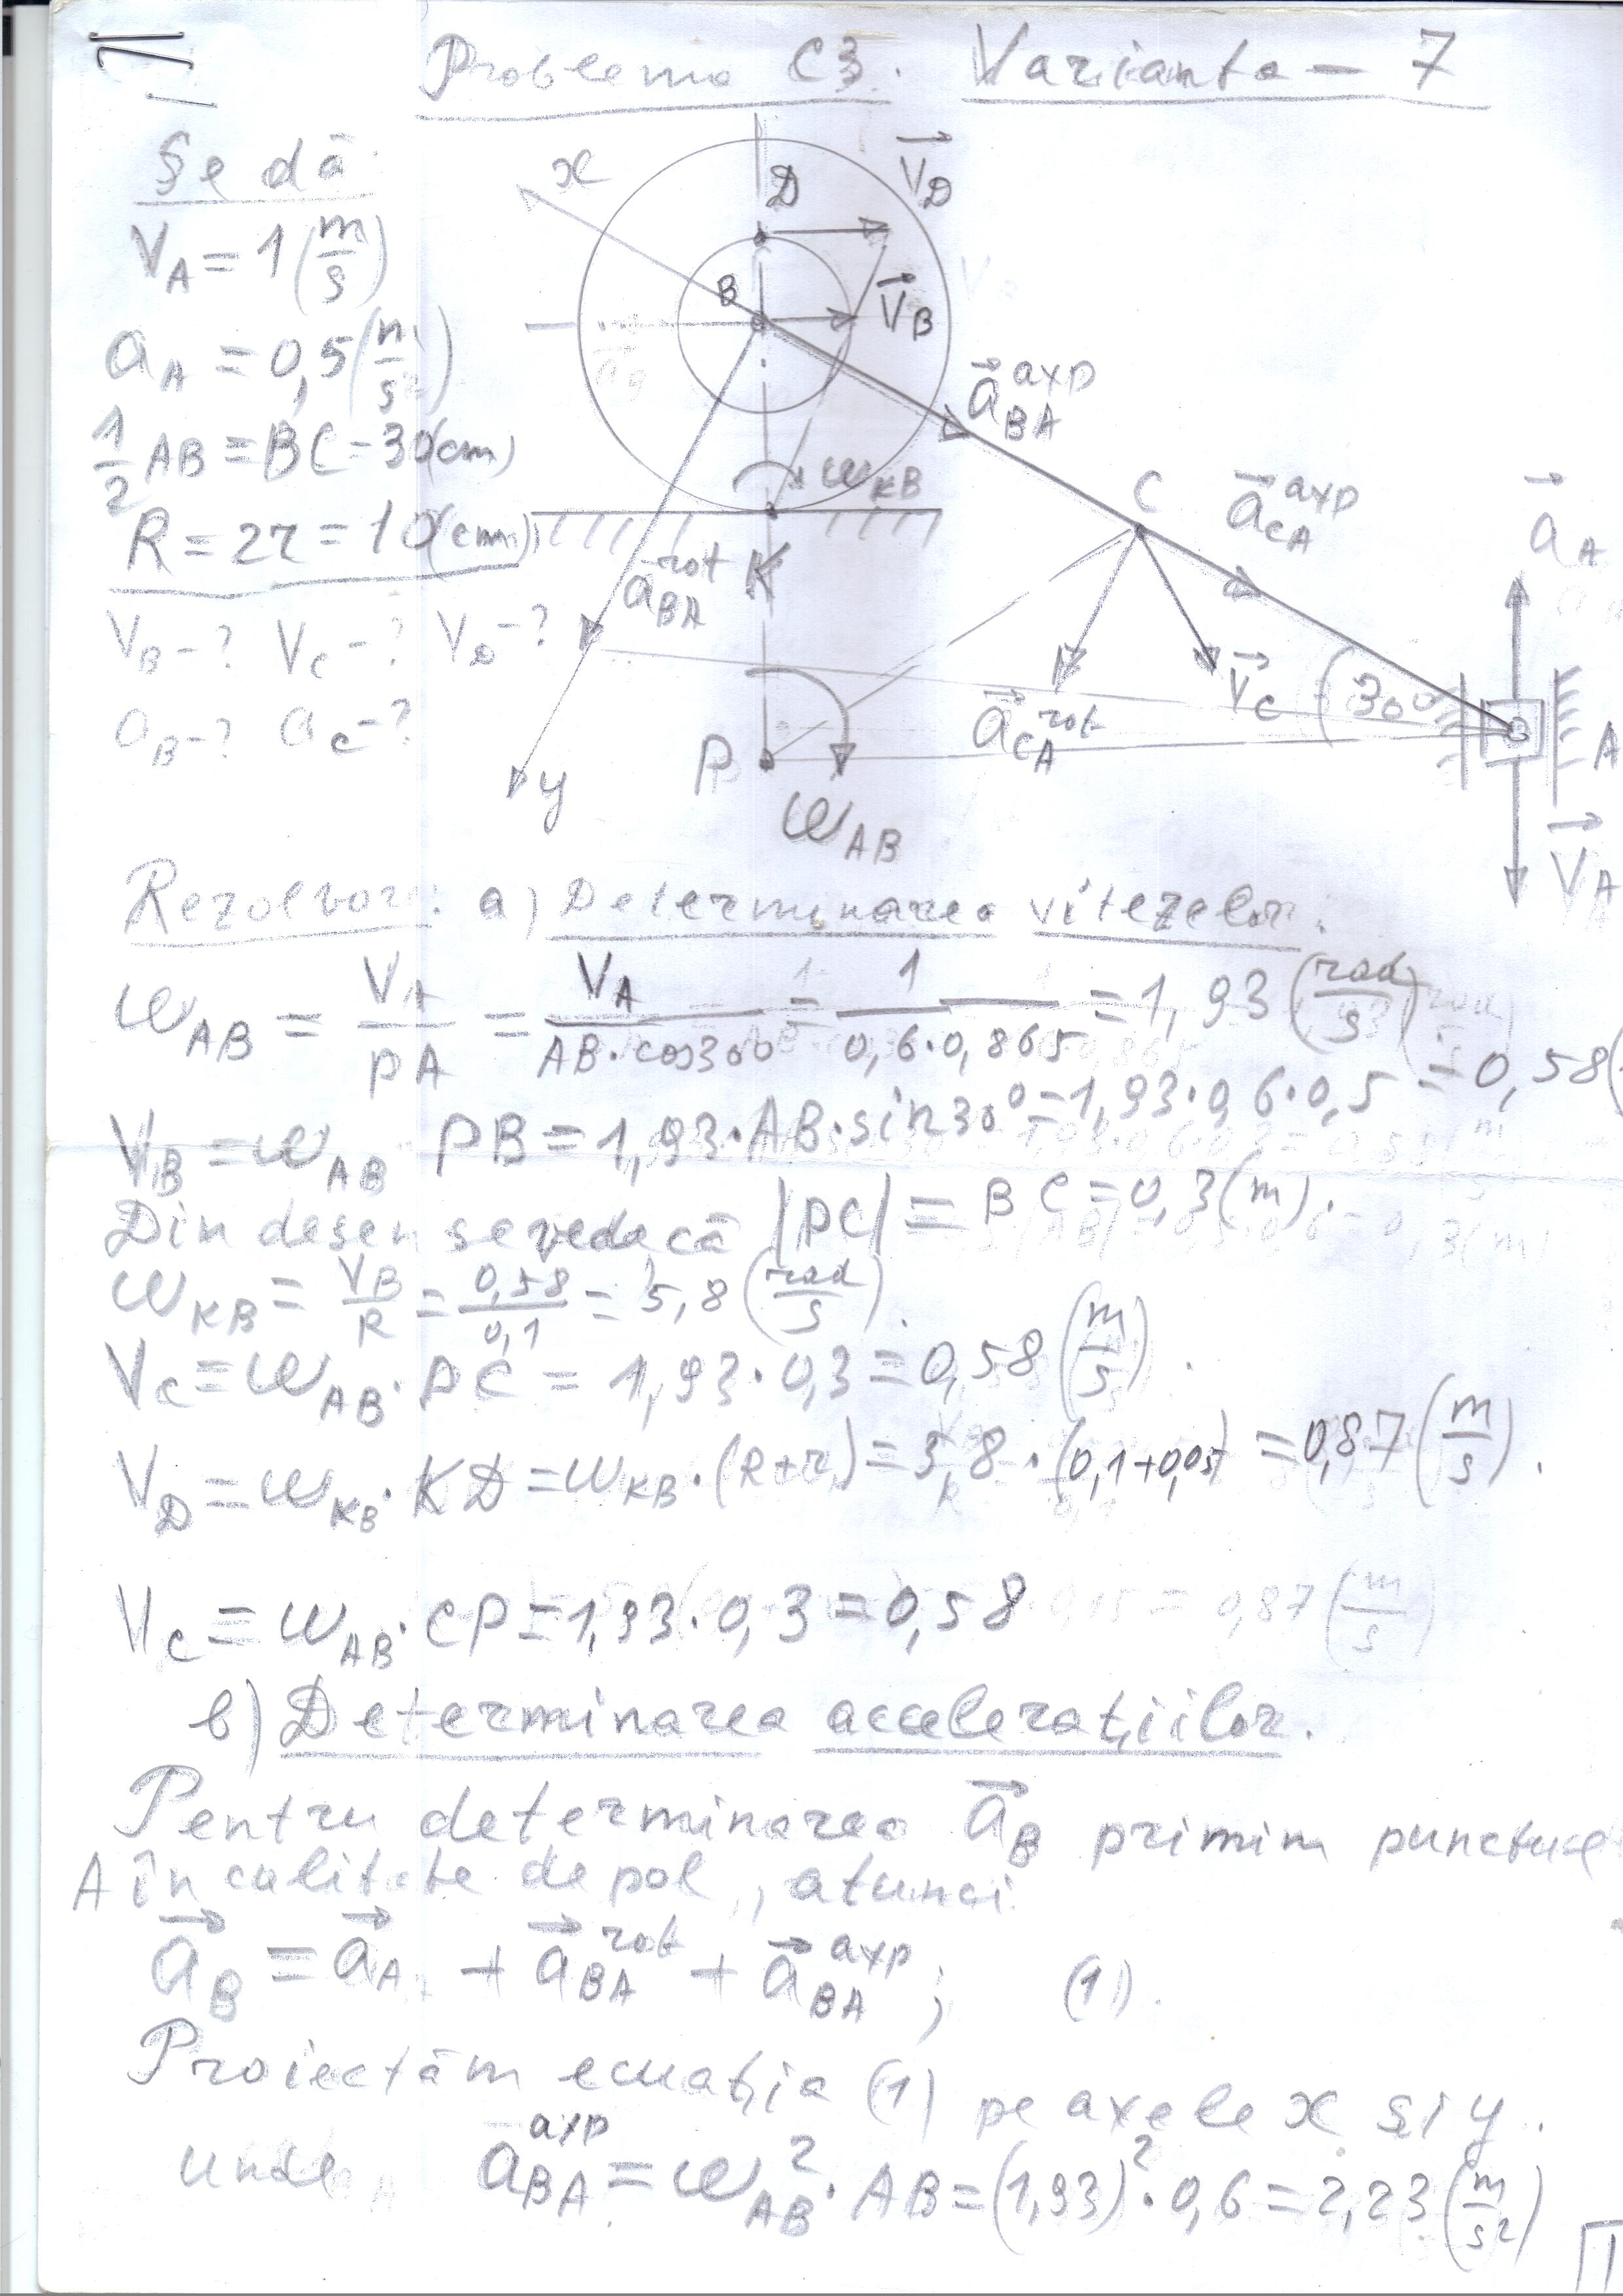 Problema C3. Varianta – 7
Se dă
V_A = 1 (m/s)
a_A = 0,5 (m/s²)
1/2 AB = BC = 30(cm)
R = 2r = 10(cm)
V_B - ? V_C - ? V_D - ?
a_B - ? a_C - ?
x
D
V_D
B
V_B
a_BA^axp
ω_KB
C
a_CA^axp
a_A
a_BA^rot
K
V_C
30°
a_CA^rot
A
P
y
ω_AB
V_A
Rezolvare: a) Determinarea vitezelor.
ω_AB = V_A/PA = V_A/(AB·cos30°) = 1/(0,6·0,865) = 1,93 (rad/s)
V_B = ω_AB PB = 1,93·AB·sin30° = 1,93·0,6·0,5 = 0,58(
Din desen se vede, că |PC| = BC = 0,3(m).
ω_KB = V_B/R = 0,58/0,1 = 5,8 (rad/s).
V_C = ω_AB · PC = 1,93·0,3 = 0,58 (m/s).
V_D = ω_KB · KD = ω_KB·(R+r) = 5,8·(0,1+0,05) = 0,87 (m/s).
V_C = ω_AB · CP = 1,93·0,3 = 0,58
b) Determinarea accelerațiilor.
Pentru determinarea a_B primim punctul
A în calitate de pol, atunci
a_B = a_A + a_BA^rot + a_BA^axp; (1).
Proiectăm ecuația (1) pe axele x și y.
unde a_BA^axp = ω_AB² · AB = (1,93)² · 0,6 = 2,23 (m/s²)